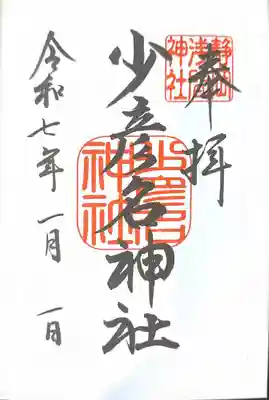 奉拝
少彦名神社
令和七年一月一日
静岡浅間神社